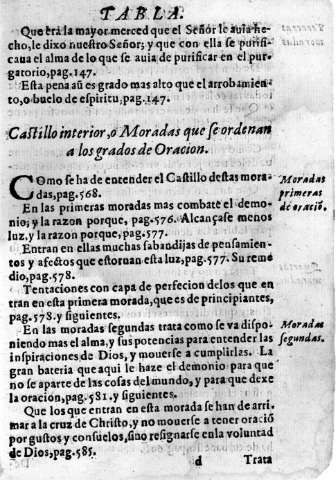 TABLA.
Que era la mayor merced que el Señor le auia he-
cho, le dixo nuestro Señor; y que con ella se purifi-
caua el alma de lo que se auia de purificar en el pur-
gatorio, pag. 147.
Esta pena aũ es grado mas alto que el arrobamien-
to, o buelo de espiritu, pag. 147.
Castillo interior, o Moradas que se ordenan
a los grados de Oracion.
COmo se ha de entender el Castillo destas mora-
das, pag. 568.
Moradas
primeras
de oraciõ.
En las primeras moradas mas combate el demo-
nio; y la razon porque, pag. 576. Alcançase menos
luz, y la razon porque, pag. 577.
Entran en ellas muchas sabandijas de pensamien-
tos y afectos que estoruan esta luz, pag. 577. Su reme
dio, pag. 578.
Tentaciones con capa de perfecion delos que en
tran en esta primera morada, que es de principiantes,
pag. 578. y siguientes.
En las moradas segundas trata como se va dispo-
niendo mas el alma, y sus potencias para entender las
inspiraciones de Dios, y mouerse a cumplirlas. La
gran bateria que aqui le haze el demonio para que
no se aparte de las cosas del mundo, y para que dexe
la oracion, pag. 581. y siguientes.
Moradas
segundas.
Que los que entran en esta morada se han de arri-
mar a la cruz de Christo, y no mouerse a tener oraciõ
por gustos y consuelos, sino resignarse en la voluntad
de Dios, pag. 585.
d Trata